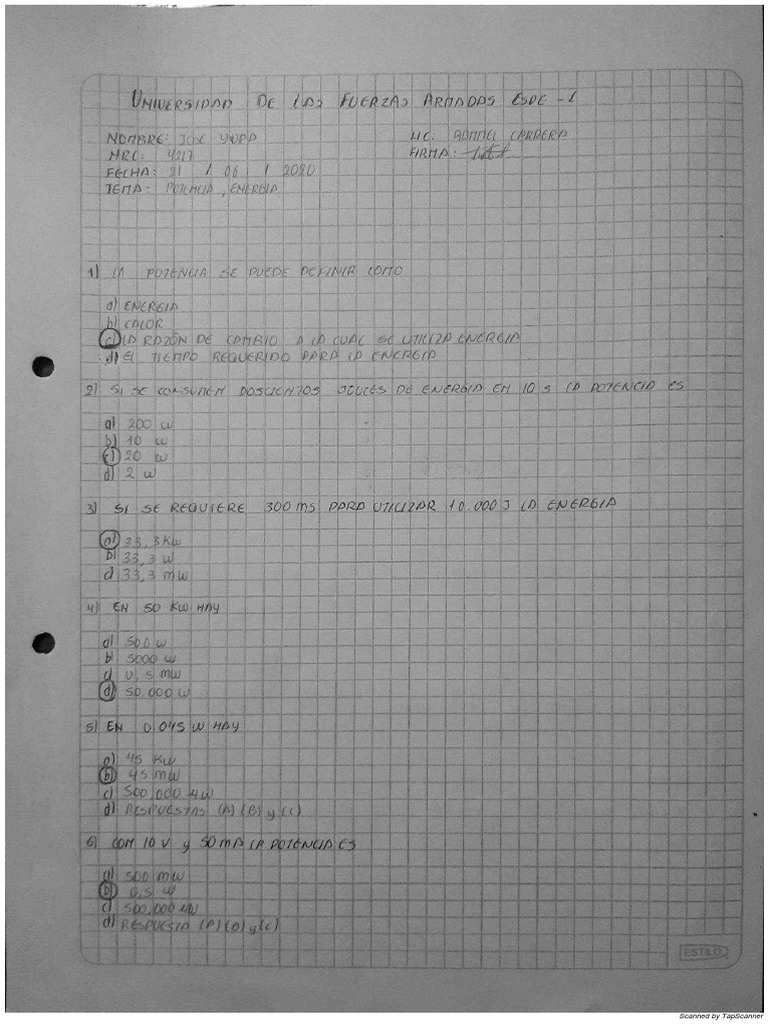 UNIVERSIDAD DE LAS FUERZAS ARMADAS ESPE - L
NOMBRE: JOSE YUPA LIC: ROMMEL CARRERA
NRC: 4217 FIRMA:
FECHA: 21 / 06 / 2020
TEMA: POTENCIA, ENERGIA
1) LA POTENCIA SE PUEDE DEFINIR COMO
a) ENERGIA
b) CALOR
c) LA RAZÓN DE CAMBIO A LA CUAL SE UTILIZA ENERGIA
d) EL TIEMPO REQUERIDO PARA LA ENERGIA
2) SI SE CONSUMEN DOSCIENTOS JOULES DE ENERGIA EN 10 s LA POTENCIA ES
a) 200 W
b) 10 W
c) 20 W
d) 2 W
3) SI SE REQUIERE 300 ms PARA UTILIZAR 10.000 J LA ENERGIA
a) 33,3 KW
b) 33,3 W
c) 33,3 mW
4) EN 50 KW HAY
a) 500 W
b) 5000 W
c) 0,5 MW
d) 50.000 W
5) EN 0.045 W HAY
a) 45 KW
b) 45 mW
c) 500,000 µW
d) RESPUESTAS (A) (B) y (C)
6) CON 10 V y 50 mA LA POTENCIA ES
a) 500 mW
b) 0,5 W
c) 500,000 µW
d) RESPUESTA (A) (B) y (C)
ESTILO
Scanned by TapScanner